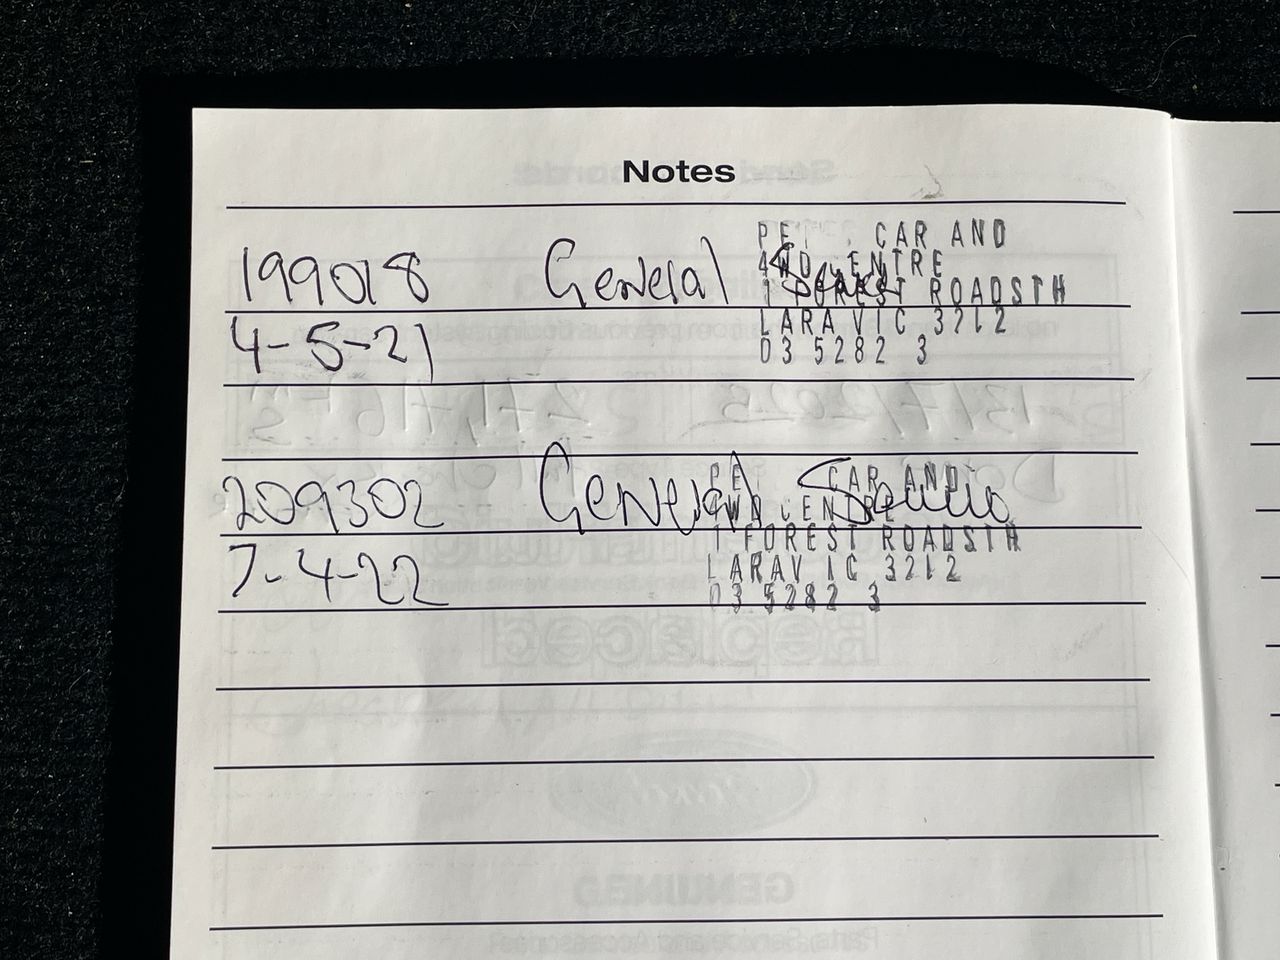 Notes
199018 General Service
PE CAR AND
4WD CENTRE
1 FOREST ROADSTH
LARA VIC 3212
03 5282 3
4-5-21
209302 General Service
PE CAR AND
4WD CENTRE
1 FOREST ROADSTH
LARAV IC 3212
03 5282 3
7-4-22